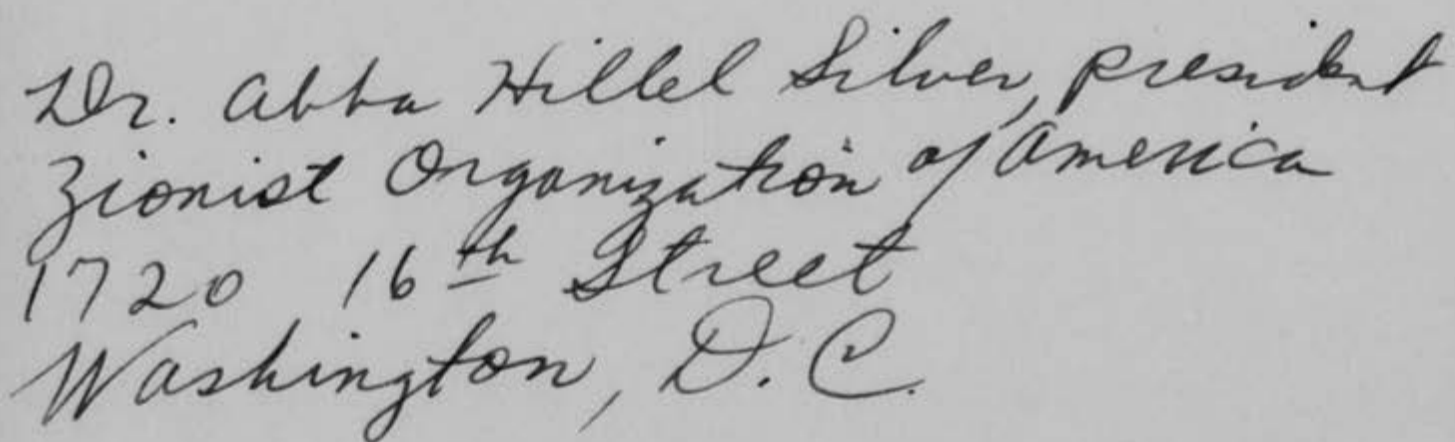 Dr. Abba Hillel Silver, president
Zionist Organization of America
1720 16th Street
Washington, D.C.